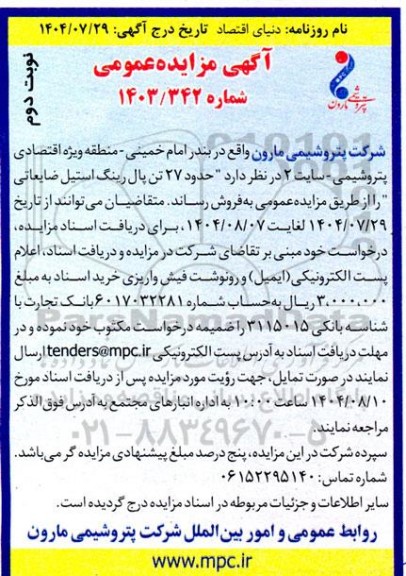 نام روزنامه: دنیای اقتصاد تاریخ درج آگهی: ۱۴۰۴/۰۷/۲۹
نوبت دوم
آگهی مزایده‌عمومی
شماره ۱۴۰۳/۳۴۲
پتروشیمی مارون
شرکت پتروشیمی مارون واقع در بندر امام خمینی - منطقه ویژه اقتصادی
پتروشیمی - سایت ۲ در نظر دارد "حدود ۲۷ تن پال رینگ استیل ضایعاتی
" را از طریق مزایده‌عمومی به‌فروش رساند. متقاضیان می‌توانند از تاریخ
۱۴۰۴/۰۷/۲۹ لغایت ۱۴۰۴/۰۸/۰۷، برای دریافت اسناد مزایده،
درخواست خود مبنی بر تقاضای شرکت در مزایده و دریافت اسناد، اعلام
پست الکترونیکی (ایمیل) و رونوشت فیش واریزی خرید اسناد به مبلغ
۳،۰۰۰،۰۰۰ ریال به‌حساب شماره ۶۰۱۷۰۳۲۲۸۱ بانک تجارت با
شناسه بانکی ۳۱۱۵۰۱۵ را ضمیمه درخواست مکتوب خود نموده و در
مهلت دریافت اسناد به آدرس پست الکترونیکی tenders@mpc.ir ارسال
نمایند در صورت تمایل، جهت رؤیت مورد مزایده پس از دریافت اسناد مورخ
۱۴۰۴/۰۸/۱۰ ساعت ۱۰:۰۰ به اداره انبارهای مجتمع به‌آدرس فوق الذکر
مراجعه نمایند.
سپرده شرکت در این مزایده، پنج درصد مبلغ پیشنهادی مزایده گر می‌باشد.
شماره تماس: ۰۶۱۵۲۲۹۵۱۴۰
سایر اطلاعات و جزئیات مربوطه در اسناد مزایده درج گردیده است.
روابط عمومی و امور بین‌الملل شرکت پتروشیمی مارون
www.mpc.ir
ParsNamadData
۰۲۱-۸۸۳۴۹۶۷۰-۵